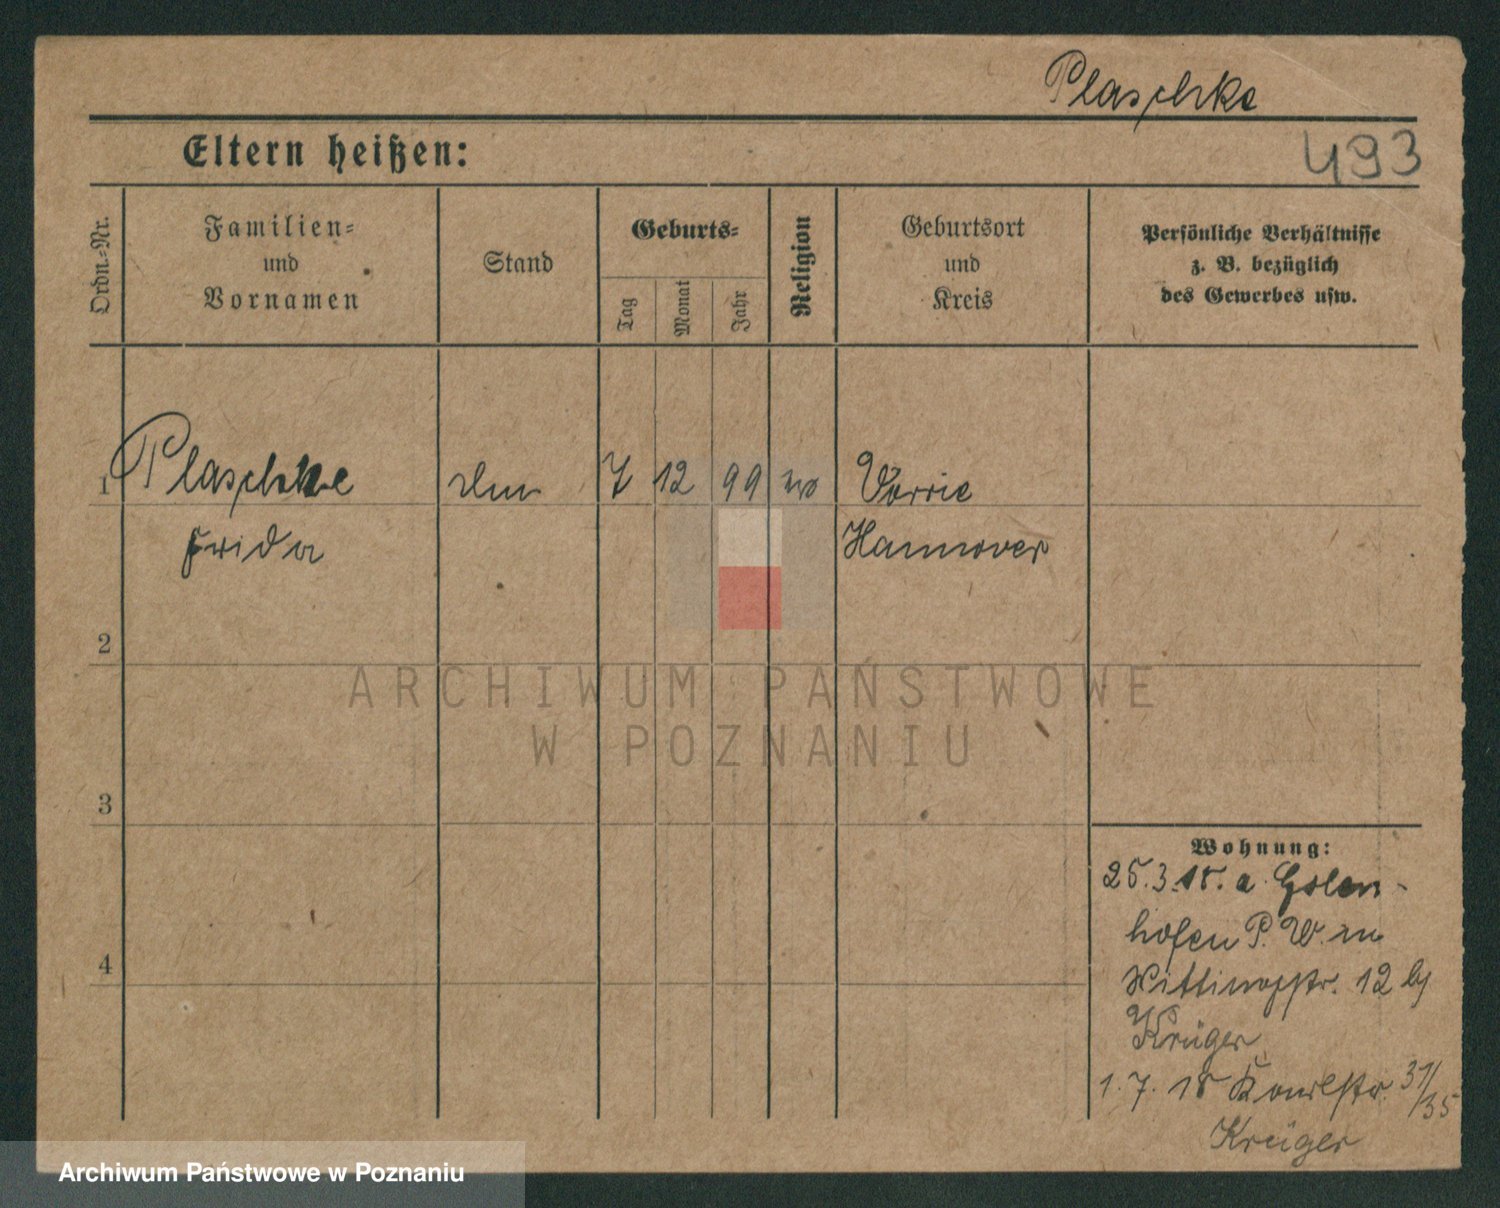 Plaschke
Eltern heißen:
493
Ordn.-Nr.
Familien-
und
Vornamen
Stand
Geburts-
Tag
Monat
Jahr
Religion
Geburtsort
und
Kreis
Persönliche Verhältnisse
z. B. bezüglich
des Gewerbes usw.
1 Plaschke 7 12 99
Frida Hannover
2
3
4
ARCHIWUM PAŃSTWOWE
W POZNANIU
Wohnung:
25.3.18. a. Golen-
hofen P. W. in
12 bj
Krüger
1.7.18 31/35
Krüger
Archiwum Państwowe w Poznaniu